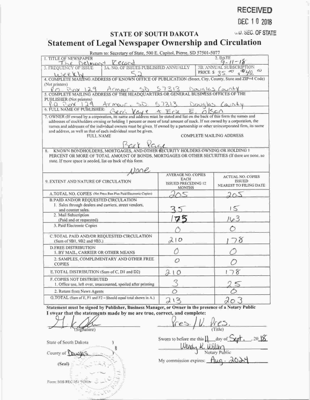 RECEIVED
DEC 10 2018
SEC. OF STATE
STATE OF SOUTH DAKOTA
Statement of Legal Newspaper Ownership and Circulation
Return to: Secretary of State, 500 E. Capitol, Pierre, SD 57501-5077
1. TITLE OF NEWSPAPER
The Delmont Record
2. DATE
9-11-18
3. FREQUENCY OF ISSUE
Weekly
3A. NO. OF ISSUES PUBLISHED ANNUALLY
52
3B. ANNUAL SUBSCRIPTION
PRICE $
4. COMPLETE MAILING ADDRESS OF KNOWN OFFICE OF PUBLICATION (Street, City, County, State and ZIP+4 Code)
(Not printers)
Po Box 129 Armour, SD 57313 Douglas County
5. COMPLETE MAILING ADDRESS OF THE HEADQUARTERS OF GENERAL BUSINESS OFFICES OF THE
PUBLISHER (Not printers)
Po Box 129 Armour, SD 57313 Douglas County
6. FULL NAME OF PUBLISHER:
7. OWNER (If owned by a corporation, its name and address must be stated and list on the back of this form the names and
addresses of stockholders owning or holding 1 percent or more of total amount of stock. If not owned by a corporation, the
names and addresses of the individual owners must be given. If owned by a partnership or other unincorporated firm, its name
and address, as well as that of each individual must be given.
FULL NAME
COMPLETE MAILING ADDRESS
Back Page
8. KNOWN BONDHOLDERS, MORTGAGES, AND OTHER SECURITY HOLDERS OWNING OR HOLDING 1
PERCENT OR MORE OF TOTAL AMOUNT OF BONDS, MORTGAGES OR OTHER SECURITIES (If there are none, so
state. If more space is needed, list on back of this form.
None
9. EXTENT AND NATURE OF CIRCULATION
AVERAGE NO. COPIES
EACH
ISSUED PRECEDING 12
MONTHS
ACTUAL NO. COPIES
ISSUED
NEAREST TO FILING DATE
A. TOTAL NO. COPIES
205
B. PAID AND/OR REQUESTED CIRCULATION
1. Sales through dealers and carriers, street vendors,
and counter sales.
35
15
2. Mail Subscription
(Paid and or requested)
175
163
3. Paid Electronic Copies
0
0
C. TOTAL PAID AND/OR REQUESTED CIRCULATION
(Sum of 9B1, 9B2 and 9B3.)
210
178
D. FREE DISTRIBUTION
1. BY MAIL, CARRIER OR OTHER MEANS
0
0
2. SAMPLES, COMPLIMENTARY AND OTHER FREE
COPIES
0
0
E. TOTAL DISTRIBUTION (Sum of C, D1 and D2)
210
178
F. COPIES NOT DISTRIBUTED
1. Office use, left over, unaccounted, spoiled after printing
3
25
2. Return from News Agents
0
0
G. TOTAL (Sum of E, F1 and F2 - Should equal total shown in A.)
213
203
Statement must be signed by Publisher, Business Manager, or Owner in the presence of a Notary Public
I swear that the statements made by me are true, correct, and complete:
Pres / V. Pres.
(Signature)
(Title)
State of South Dakota )
County of Douglas )
(Seal)
Sworn to before me this 11 day of Sept. 2018
Notary Public
My commission expires: Aug. 2024